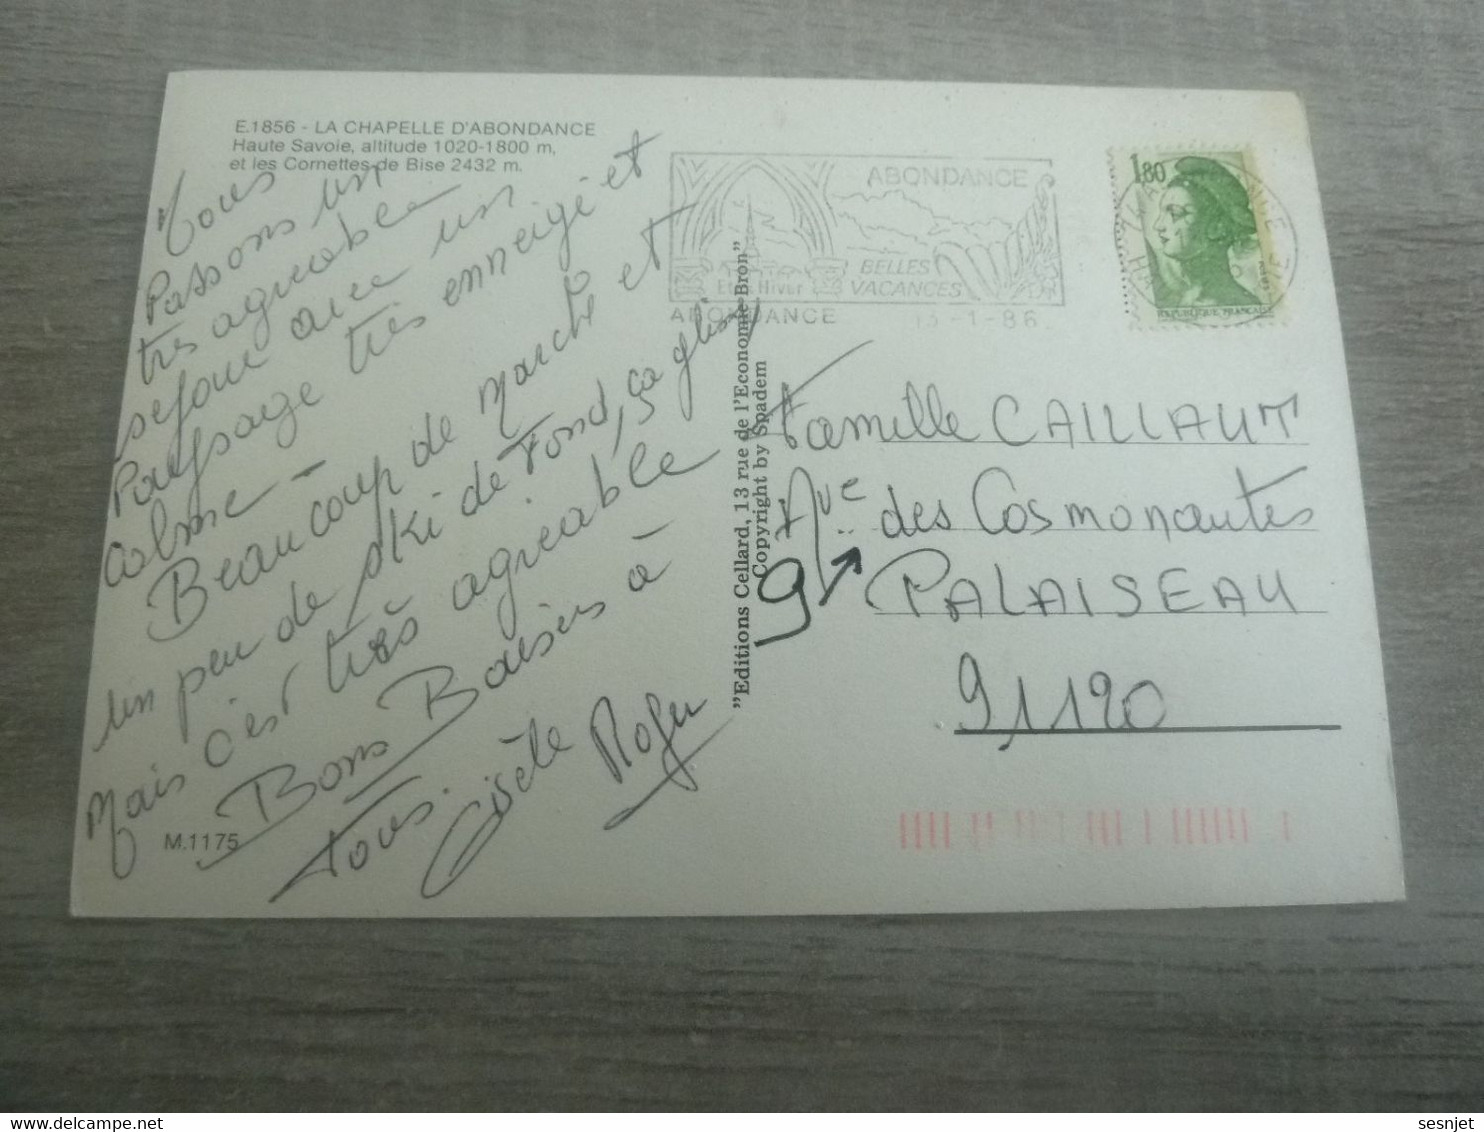 E.1856 - LA CHAPELLE D'ABONDANCE
Haute Savoie, altitude 1020-1800 m,
et les Cornettes de Bise 2432 m.
Nous
Passons un
très agréable
séjour avec un
Paysage très enneigé et
calme -
Beaucoup de marche et
un peu de ski de Fond, ça glisse
Mais c'est très agréable
Bons Baisers à
tous.
Gisèle Roger
M.1175
"Editions Cellard, 13 rue de l'Economie-Bron"
Copyright by Spadem
ABONDANCE
Eté Hiver
BELLES
VACANCES
ABONDANCE 13-1-86
1,80
REPUBLIQUE FRANCAISE
Famille CAILLAUT
9 Ave des Cosmonautes
PALAISEAU
91120
sesnjet